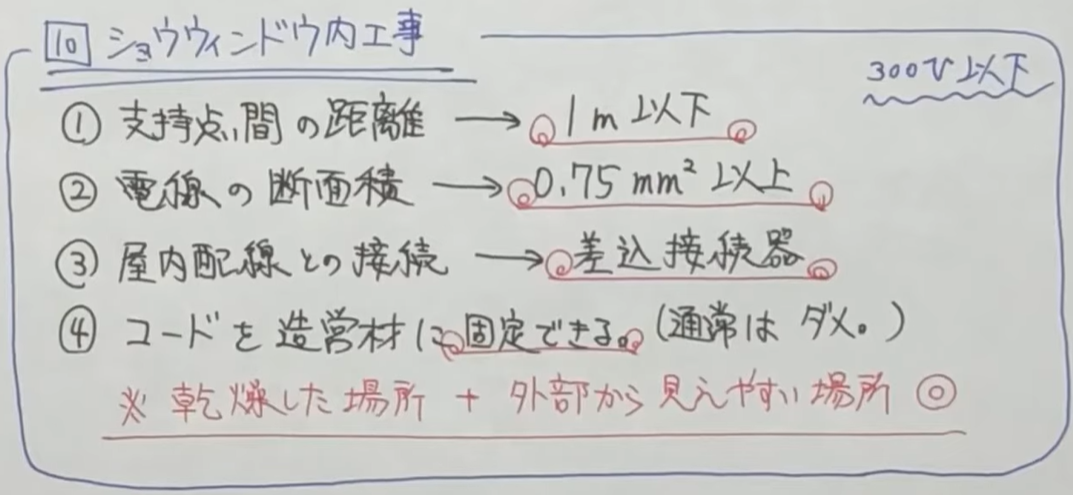 10 ショウウィンドウ内工事
300V以下
① 支持点間の距離 → 1m以下
② 電線の断面積 → 0.75mm²以上
③ 屋内配線との接続 → 差込接続器
④ コードを造営材に固定できる。(通常はダメ。)
※ 乾燥した場所 + 外部から見えやすい場所 ◎